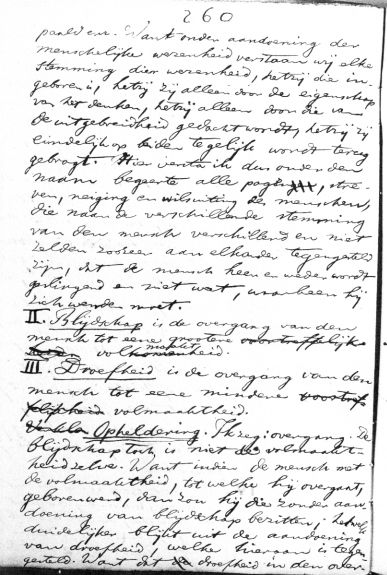 260
paald enz. Want onder aandoening der
menschelijke wezenheid verstaan wij elke
stemming dier wezenheid, hetzij die in-
geboren is, hetzij zij alleen door de eigenschap
van het denken, hetzij alleen door die van
de uitgebreidheid gedacht wordt, hetzij zij
eindelijk op beiden tegelijk wordt terug
gebragt. Hier versta ik dus onder den
naam begeerte alle poging, stre-
ven, neiging en wilsuiting des menschen,
die naar de verschillende stemming
van den mensch verschillend en niet
zelden zoozeer aan elkander tegengesteld
zijn, dat de mensch heen en weder wordt
geslingerd en niet weet, waarheen hij
zich wenden moet.
II. Blijdschap is de overgang van den
mensch tot eene grootere voortreffelijk
volmaaktheid.
III. Droefheid is de overgang van den
mensch tot eene mindere voortref-
felijkheid volmaaktheid.
Opheldering. Ik zeg: overgang. De
blijdschap toch is niet de volmaakt-
heid zelve. Want indien de mensch met
de volmaaktheid, tot welke hij overgaat,
geboren werd, dan zou hij die zonder aan-
doening van blijdschap bezitten; hetwelk
duidelijker blijkt uit de aandoening
van droefheid, welke hieraan is tegen-
gesteld. Want dat droefheid in den over-